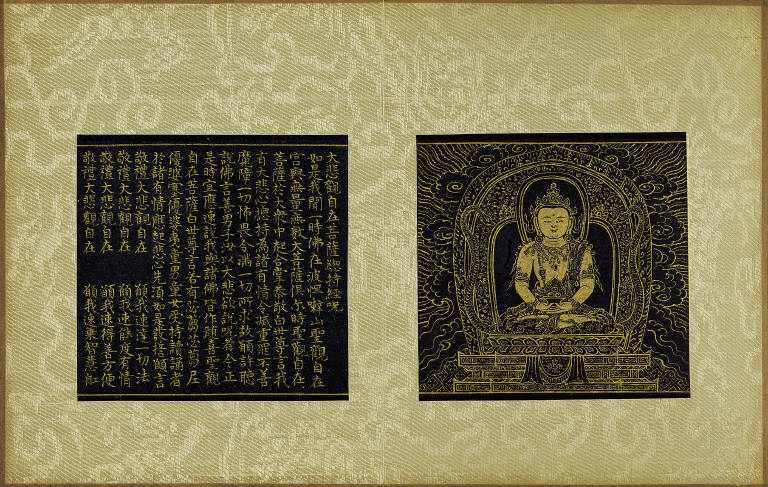 大悲觀自在菩薩總持經呪
如是我聞一時佛在波怛囉山聖觀自在
宮與無量無數大菩薩俱尒時聖觀自在
菩薩於大衆中起合掌恭敬白世尊言我
有大悲心總持為諸有情令滅重罪不善
魔障一切怖畏令滿一切所求故願許聽
說佛言善男子汝以大悲欲說呪者今正
是時宜應速說我與諸佛皆作隨喜聖觀
自在菩薩白世尊言若有苾蒭苾蒭尼
優婆塞優婆夷童男童女受持讀誦者
於諸有情應起悲心先須如是發誓願言
敬禮大悲觀自在 願我速達一切法
敬禮大悲觀自在 願我速能度有情
敬禮大悲觀自在 願我速得善方便
敬禮大悲觀自在 願我速乘智慧船